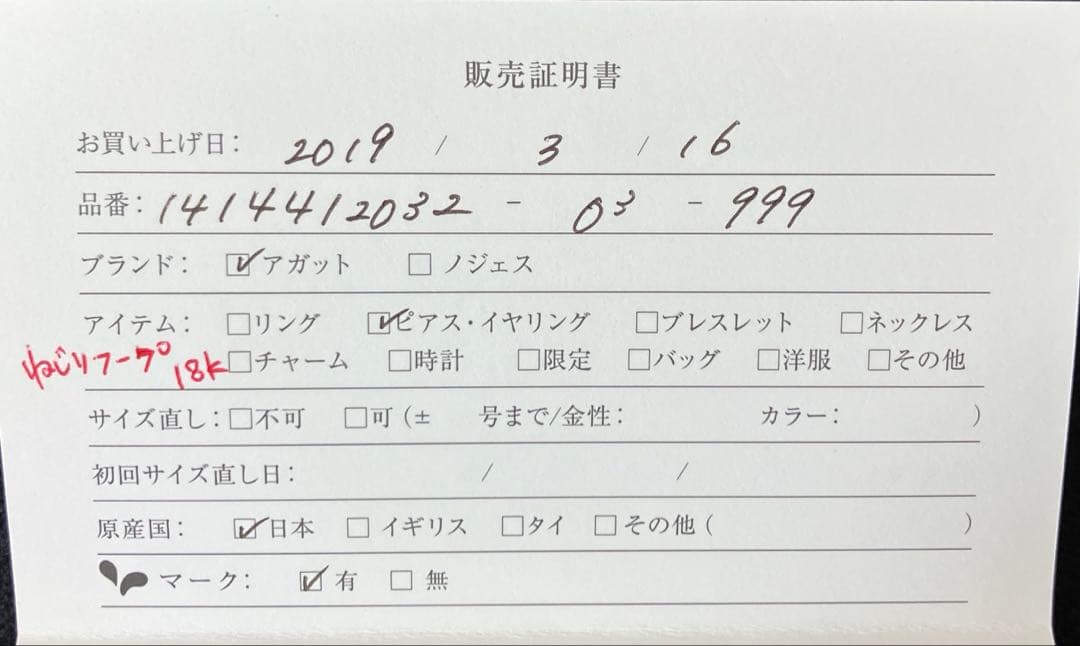 販売証明書
お買い上げ日: 2019 / 3 / 16
品番: 1414412032 - 03 - 999
ブランド: ☑アガット □ノジェス
アイテム: □リング ☑ピアス・イヤリング □ブレスレット □ネックレス
ねじりフープ 18K □チャーム □時計 □限定 □バッグ □洋服 □その他
サイズ直し: □不可 □可 (± 号まで/金性: カラー: )
初回サイズ直し日: / /
原産国: ☑日本 □イギリス □タイ □その他 ( )
マーク: ☑有 □無